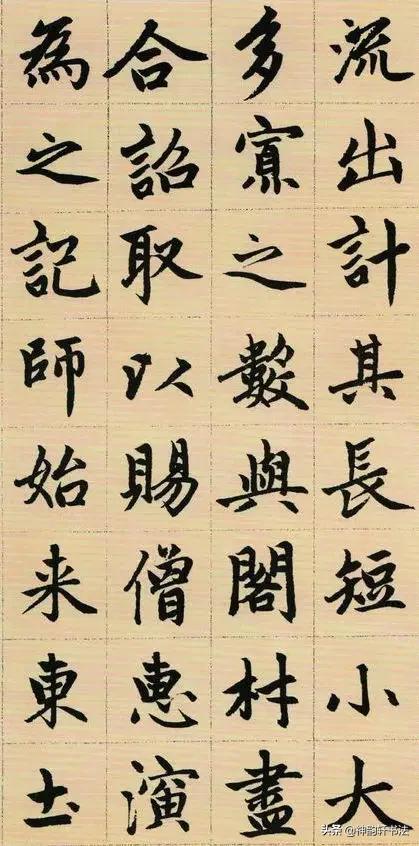 流出計其長短小大
多寡之數與閣材盡
合詔取以賜僧惠演
為之記師始来東土
头条 @神韵轩书法